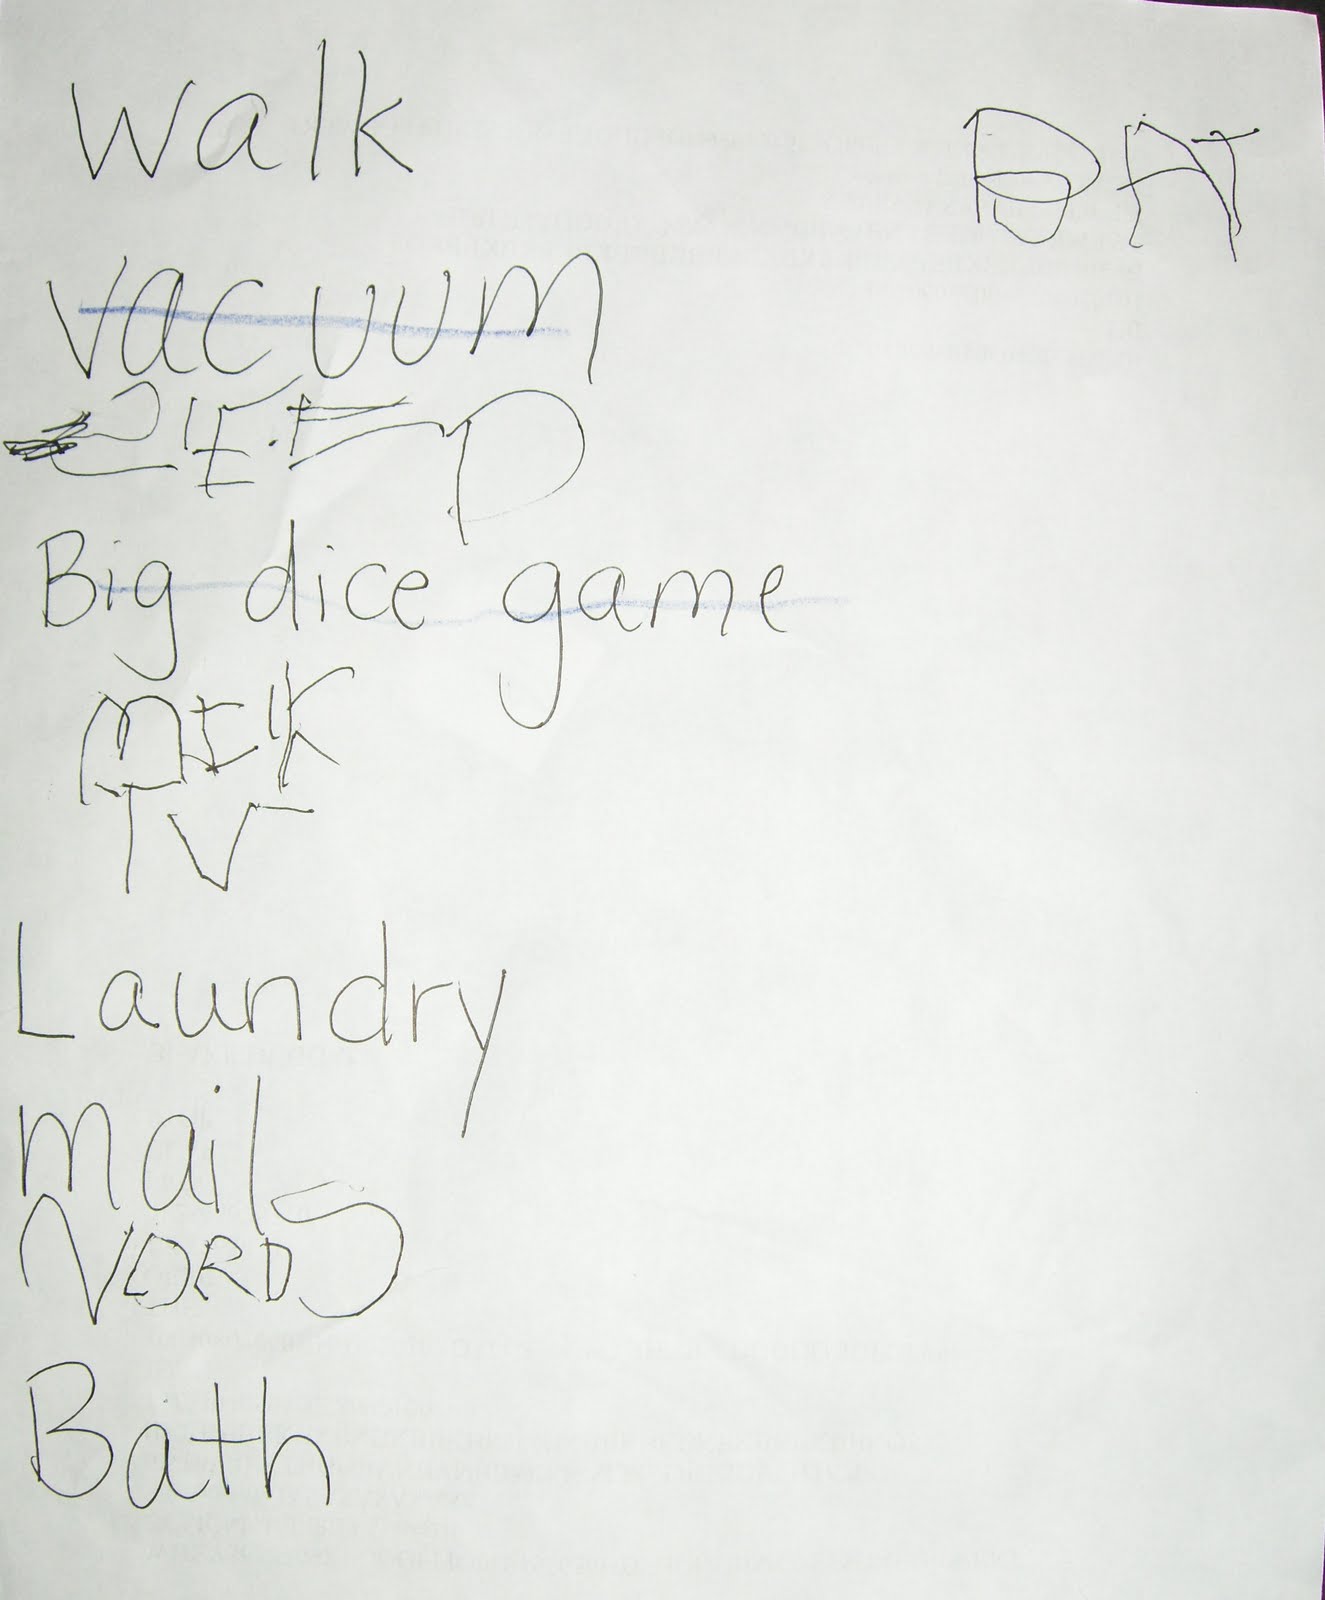 Walk
BAT
Vacuum
Big dice game
MILK
TV
Laundry
Mail
WORDS
Bath